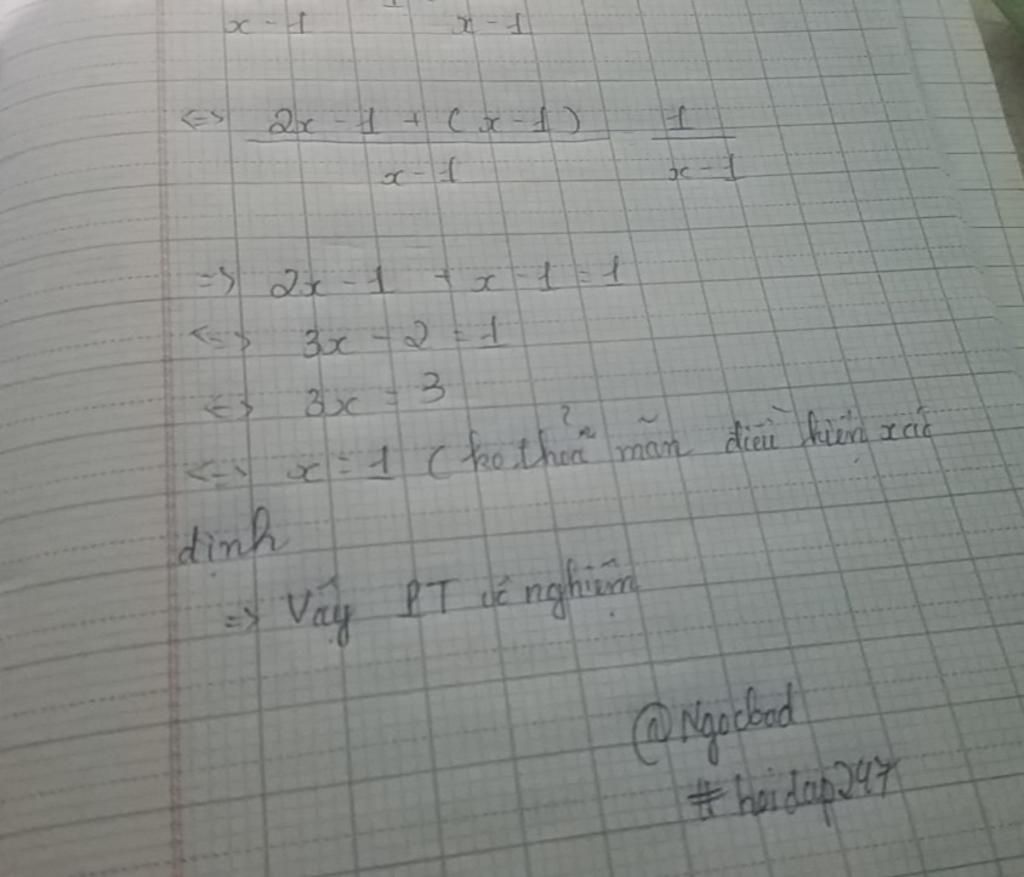 x - 1 x - 1
<=> 2x - 1 + (x - 1) 1
x - 1 x - 1
=> 2x - 1 + x - 1 = 1
<=> 3x - 2 = 1
<=> 3x = 3
<=> x = 1 (ko thoả mãn điều kiện xác
định
=> Vậy PT vô nghiệm
@Ngocbad
#hoidap247